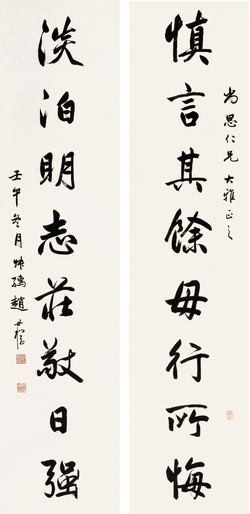 尚思仁兄大雅正之
慎言其餘毋行所悔
淡泊明志莊敬日强
壬午冬月叔孺趙時棡